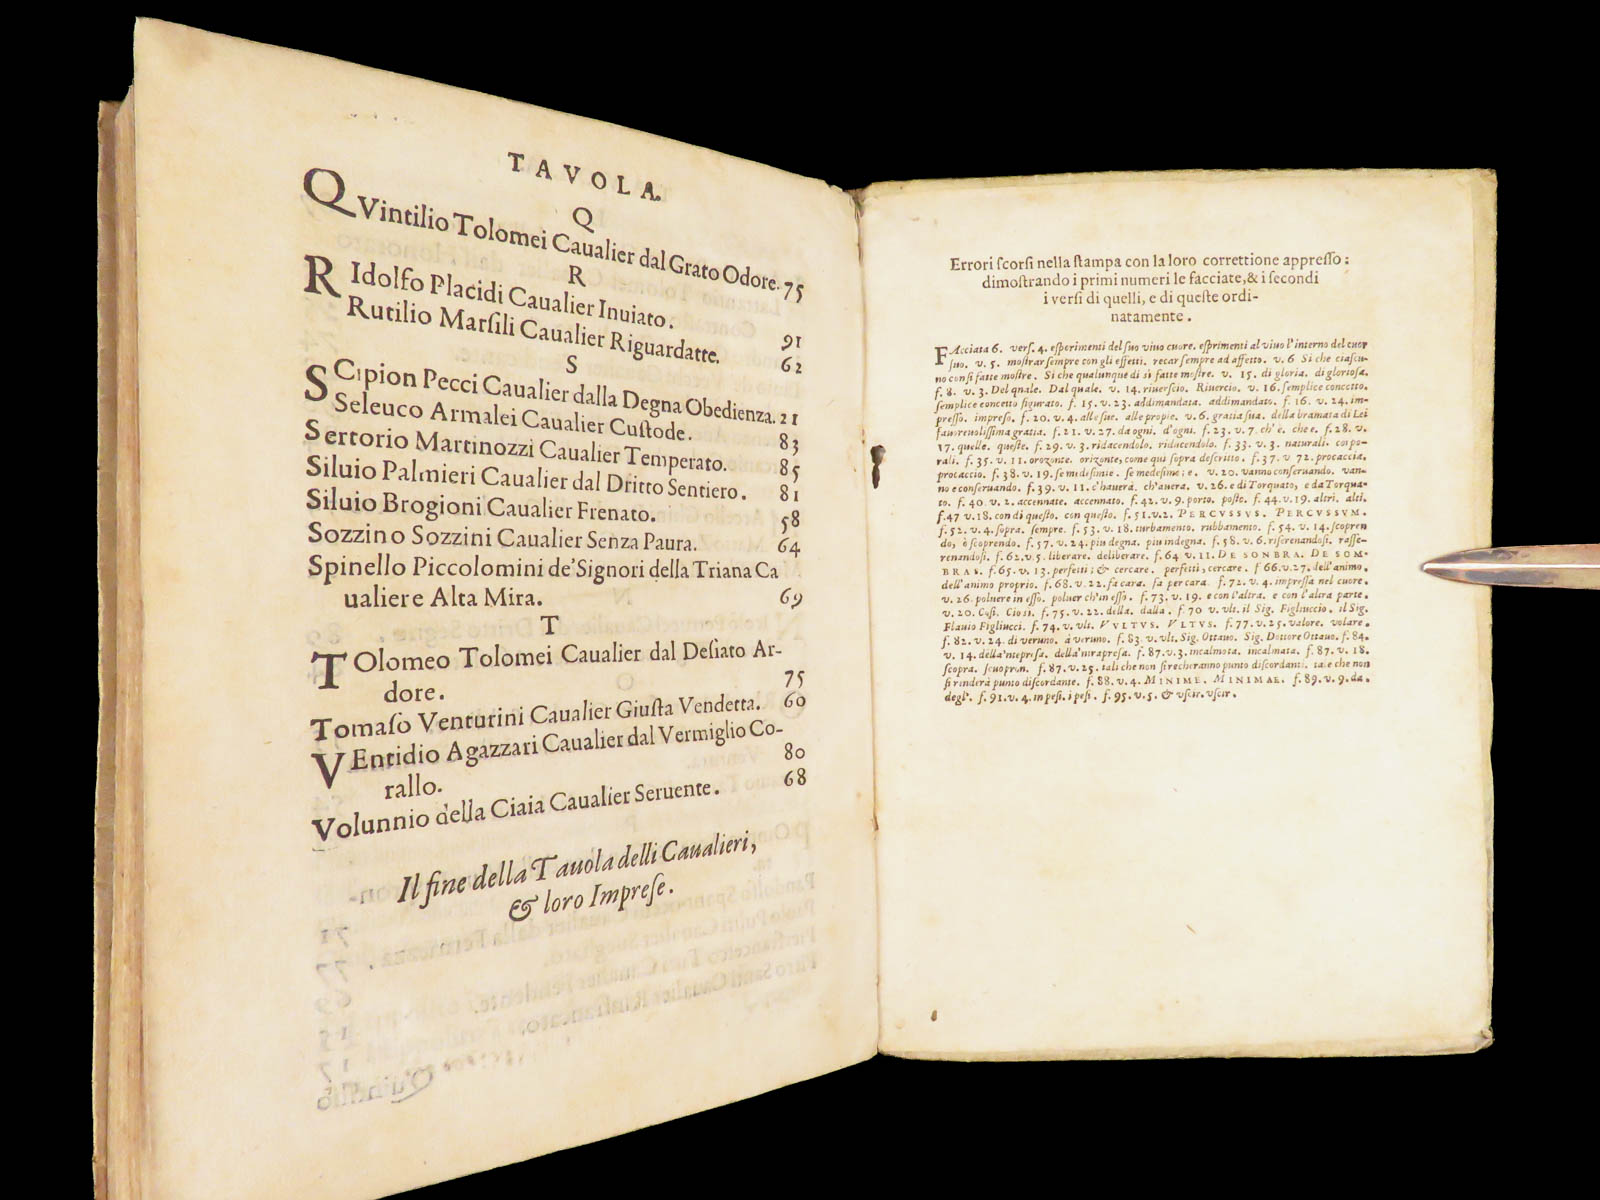 TAVOLA.
Q
QVintilio Tolomei Caualier dal Grato Odore. 75
R
RIdolfo Placidi Caualier Inuiato. 91
Rutilio Marſili Caualier Riguardatte. 62
S
SCipion Pecci Caualier dalla Degna Obedienza. 21
Seleuco Armalei Caualier Cuſtode. 83
Sertorio Martinozzi Caualier Temperato. 85
Siluio Palmieri Caualier dal Dritto Sentiero. 81
Siluio Brogioni Caualier Frenato. 58
Sozzino Sozzini Caualier Senza Paura. 64
Spinello Piccolomini de'Signori della Triana Ca
ualiere Alta Mira. 69
T
TOlomeo Tolomei Caualier dal Deſiato Ar-
dore. 75
Tomaſo Venturini Caualier Giuſta Vendetta. 60
VEntidio Agazzari Caualier dal Vermiglio Co-
rallo. 80
Volunnio della Ciaia Caualier Seruente. 68
Il fine della Tauola delli Caualieri,
& loro Impreſe.
Errori ſcorſi nella ſtampa con la loro correttione appreſſo:
dimoſtrando i primi numeri le facciate, & i ſecondi
i verſi di quelli, e di queſte ordi-
natamente.
FAcciata 6. verſ. 4. eſperimenti del ſuo viuo cuore. eſprimenti al viuo l'interno del cuor
ſuo. v. 5. moſtrar ſempre con gli effetti. recar ſempre ad affetto. v. 6 Si che ciaſcu-
no con ſi fatte moſtre. Si che qualunque di ſi fatte moſtre. v. 15. di gloria. di glorioſa.
f. 8. v. 3. Del qnale. Dal quale. v. 14. riuerſcio. Riuercio. v. 16. ſemplice concetto.
ſemplice concetto figurato. f. 15. v. 23. addimandata. addimandato. f. 16. v. 24. im-
preſſo. impreſo. f. 20. v. 4. alle ſue. alle propie. v. 6. gratia ſua. della bramata di Lei
fauoreuoliſſima gratia. f. 21. v. 27. da ogni. d'ogni. f. 23. v. 7. ch'è. che e. f. 28. v.
17. quelle. queſte. f. 29. v. 3. ridacendolo. riducendolo. f. 33. v. 3. naturali. corpo-
rali. f. 35. v. 11. orozonte. orizonte, come qui ſopra deſcritto. f. 37. v 72. procaccia.
procaccio. f. 38. v. 19. ſe medeſimie. ſe medeſime; e. v. 20. vanno conſeruando. van-
no e conſeruando. f. 39. v. 11. c'hauerà. ch'auera. v. 26. e di Torquato, e da Torqua-
to. f. 40. v. 2. accennate. accennato. f. 42. v. 9. porto. poſto. f. 44. v. 19. altri. alti.
f. 47 v. 18. con di queſto. con queſto. f. 51. v. 2. PERCVSSVS. PERCVSSVM.
f. 52. v. 4. ſopra. ſempre. f. 53. v. 18. turbamento. rubbamento. f. 54. v. 14. ſcopren
do, è ſcoprendo. f. 57. v. 24. piu degna. piu indegna. f. 58. v. 6. riſerenandoſi. raſſe-
renandoſi. f. 62. v. 5. liberare. deliberare. f. 64 v. 11. DE SONBRA. DE SOM-
BRAS. f. 65. v. 13. perfetti; & cercare. perfetti; cercare. f 66. v. 27. dell'animo.
dell'animo proprio. f. 68. v. 22. fa cara. fa per cara. f. 72. v. 4. impreſſa nel cuore.
v. 26. poluere in eſſo. poluer ch'in eſſo. f. 73. v. 19. e con l'altra. e con l'altra parte.
v. 20. Coſi. Cio si. f. 75. v. 22. della. dalla. f. 70 v. vlt. il Sig. Figliuccio. il Sig.
Flauio Figliucci. f. 74. v. vlt. VVLTVS. VLTVS. f. 77. v. 25. valore. volare.
f. 82. v. 24. di veruno. à veruno. f. 83. v. vlt. Sig. Ottauo. Sig. Dottore Ottauo. f. 84.
v. 14. della'ntepreſa. della'ntrapreſa. f. 87. v. 3. incalmota. incalmata. f. 87. v. 18.
ſcopra. ſcuopron. f. 87. v. 25. tali che non ſi recheranno punto diſcordanti. tale che non
ſi renderà punto diſcordante. f. 88. v. 4. MINIME. MINIMAE. f. 89. v. 9. da.
degl'. f. 91. v. 4. in peſi. i peſi. f. 95. v. 5. & vſcir. vſcir.